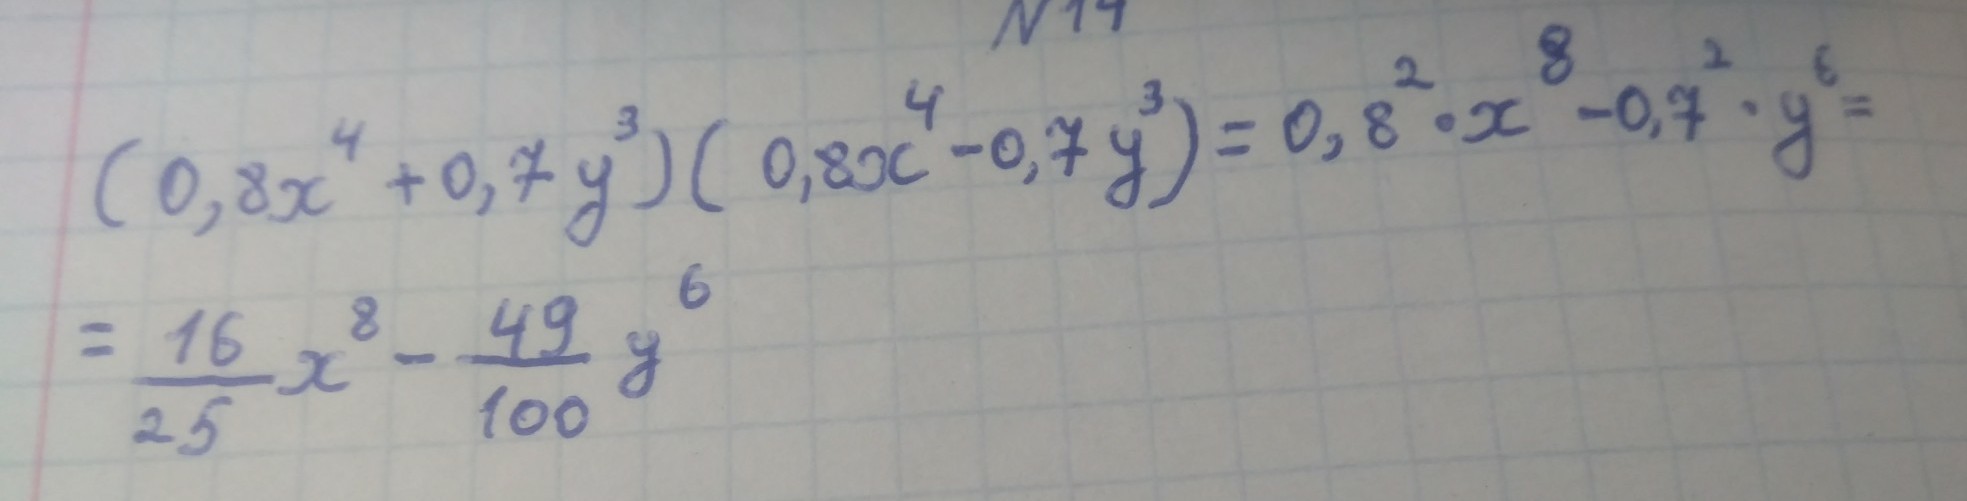 N14
(0,8x⁴+0,7y³)(0,8x⁴-0,7y³)=0,8²·x⁸-0,7²·y⁶=
=16/25x⁸-49/100y⁶